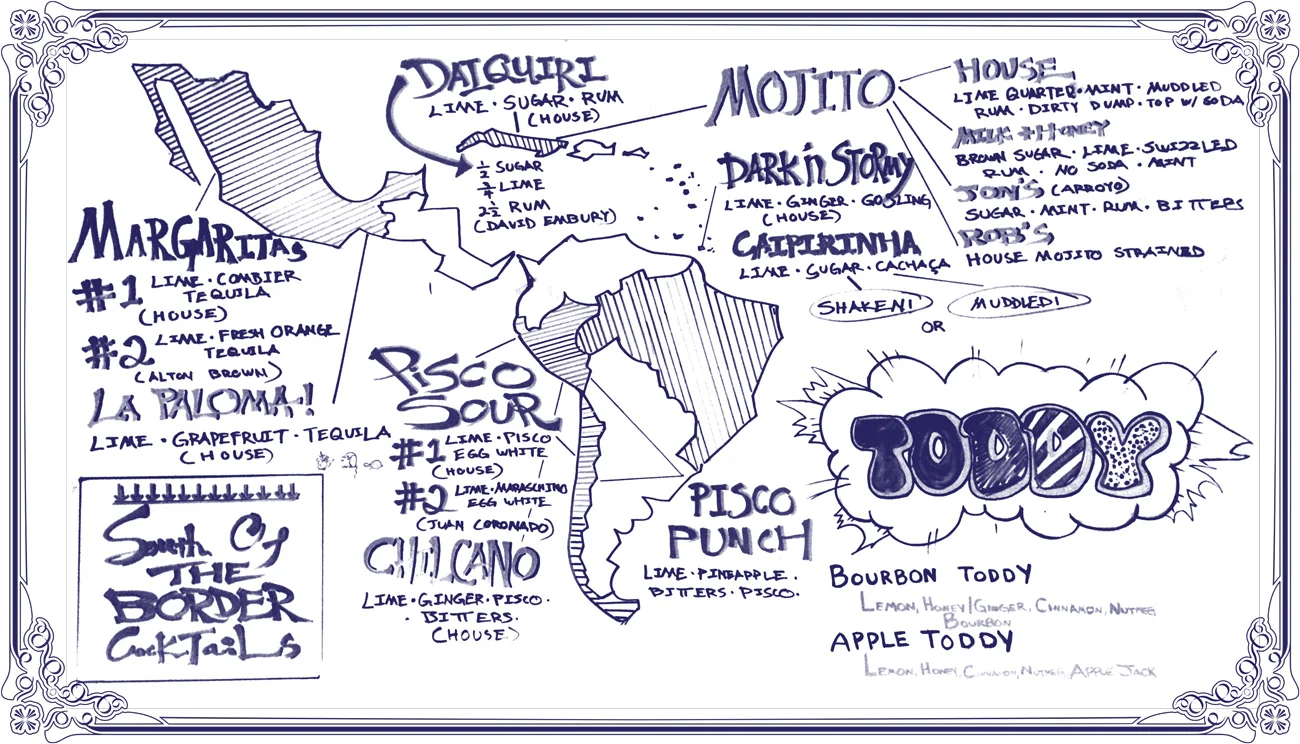 DAIQUIRI
LIME · SUGAR · RUM
(HOUSE)
½ SUGAR
¾ LIME
2½ RUM
(DAVID EMBURY)
MOJITO
HOUSE
LIME QUARTER · MINT · MUDDLED
RUM · DIRTY DUMP · TOP W/ SODA
MILK + HONEY
BROWN SUGAR · LIME · SWIZZLED
RUM · NO SODA · MINT
JON'S (ARROYO)
SUGAR · MINT · RUM · BITTERS
ROB'S
HOUSE MOJITO STRAINED
DARK 'n STORMY
LIME · GINGER · GOSLING
(HOUSE)
CAIPIRINHA
LIME · SUGAR · CACHAÇA
SHAKEN!
OR
MUDDLED!
MARGARITAS
#1 LIME · COMBIER
TEQUILA
(HOUSE)
#2 LIME · FRESH ORANGE
TEQUILA
(ALTON BROWN)
LA PALOMA!
LIME · GRAPEFRUIT · TEQUILA
(HOUSE)
PISCO
SOUR
#1 LIME · PISCO
EGG WHITE
(HOUSE)
#2 LIME · MARASCHINO
EGG WHITE
(JUAN CORONADO)
CHILCANO
LIME · GINGER · PISCO ·
· BITTERS ·
(HOUSE)
PISCO
PUNCH
LIME · PINEAPPLE ·
BITTERS · PISCO ·
South Of
THE
BORDER
CockTaiLs
TODDY
BOURBON TODDY
LEMON, HONEY/GINGER, CINNAMON, NUTMEG,
BOURBON
APPLE TODDY
LEMON, HONEY, CINNAMON, NUTMEG, APPLE JACK